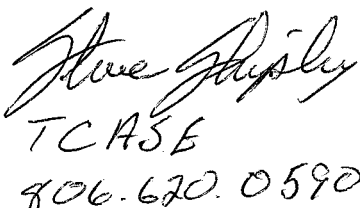 Steve Shipley
TCASE
806.620.0590